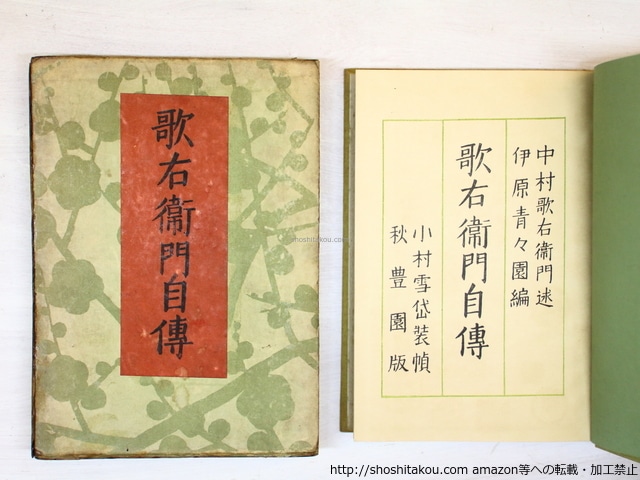 歌右衞門自傳
中村歌右衞門述
伊原青々園編
歌右衞門自傳
小村雪岱装幀
秋豊園版
shoshitakou.com
http://shoshitakou.com amazon等への転載・加工禁止